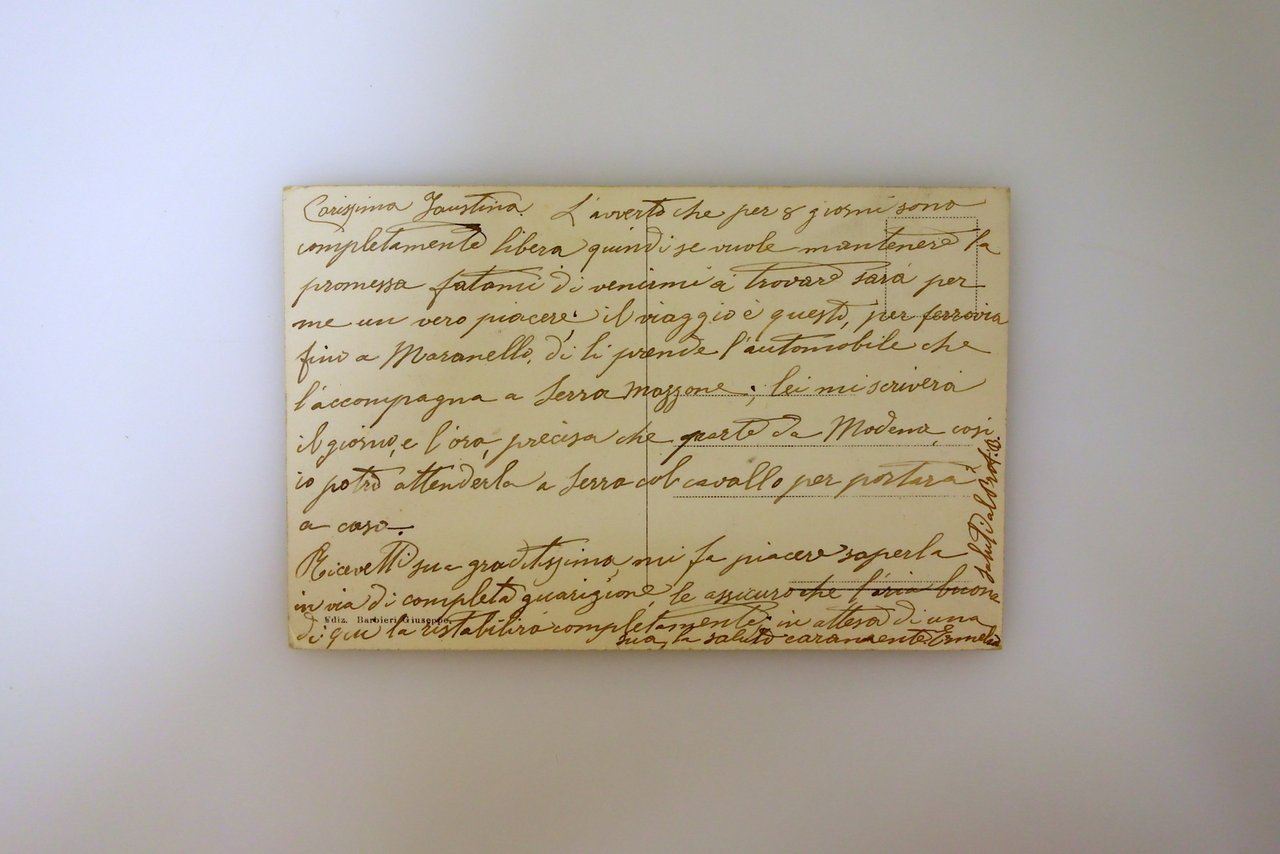 Carissima Faustina. L'avverto che per 8 giorni sono
completamente libera quindi se vuole mantenere la
promessa fatami di venirmi a trovare sarà per
me un vero piacere; il viaggio è questo, per ferrovia
fino a Maranello, di li prende l'automobile che
l'accompagna a Serra Mazzone; lei mi scriverà
il giorno, e l'ora, precisa che parte da Modena, così
io potrò attenderla a Serra col cavallo per portarà
a casa.
Ricevetti sua graditissima, mi fa piacere saperla
in via di completa guarigione, le assicuro che l'aria buona
di qui la ristabilirà completamente, in attesa di una
sua, la saluto caramente Ermelia
Saluti dal
Ediz. Barbieri Giuseppe